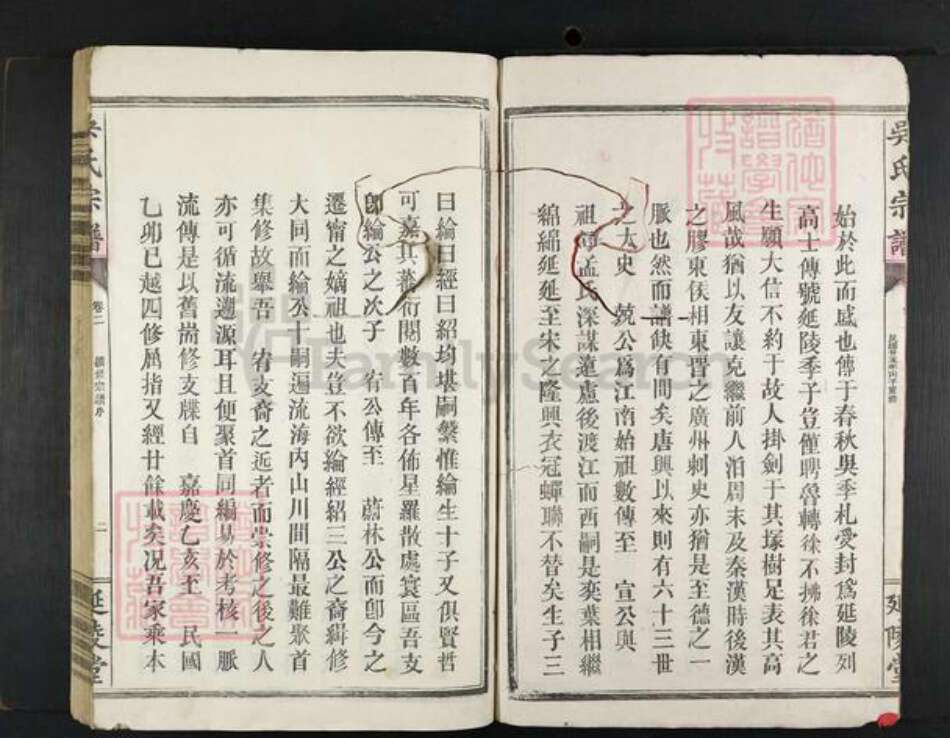 吳氏宗譜
延陵堂
始於此而感也傳于春秋吳季札受封爲延陵列
高士傳號延陵季子豈僅聘魯轉徐不拂徐君之
生願大信不約于故人掛劍于其塚樹足表其高
風哉猶以友讓克繼前人洎周末及秦漢時後漢
之膠東侯相東晋之廣州刺史亦猶是至德之一
脈也然而譜缺有間矣唐興以來則有六十三世
之太史 兢公爲江南始祖數傳至 宣公與
祖 孟氏深謀遠慮後渡江而西嗣是奕葉相繼
綿綿延延至宋之隆興衣冠蟬聯不替矣生子三
曰綸曰經曰紹均堪嗣繫惟綸生十子又俱賢哲
可嘉其蕃衍閱數百年各佈星羅散處寰區吾支
卽綸公之次子 宥公傳至 蔚林公而卽今之
遷甯之嫡祖也夫豈不欲綸經紹三公之裔緝修
大同而綸公十嗣遍流海內山川間隔最難聚首
集修故舉吾 宥支裔之近者而崇修之後之人
亦可循流遡源耳且便聚首同編易於考核一脈
流傳是以舊崗修支牒自 嘉慶乙亥至 民國
乙卯已越四修屈指又經廿餘載矣况吾家乘本
吳氏宗譜
卷二
續修宗譜序
二
延陵堂